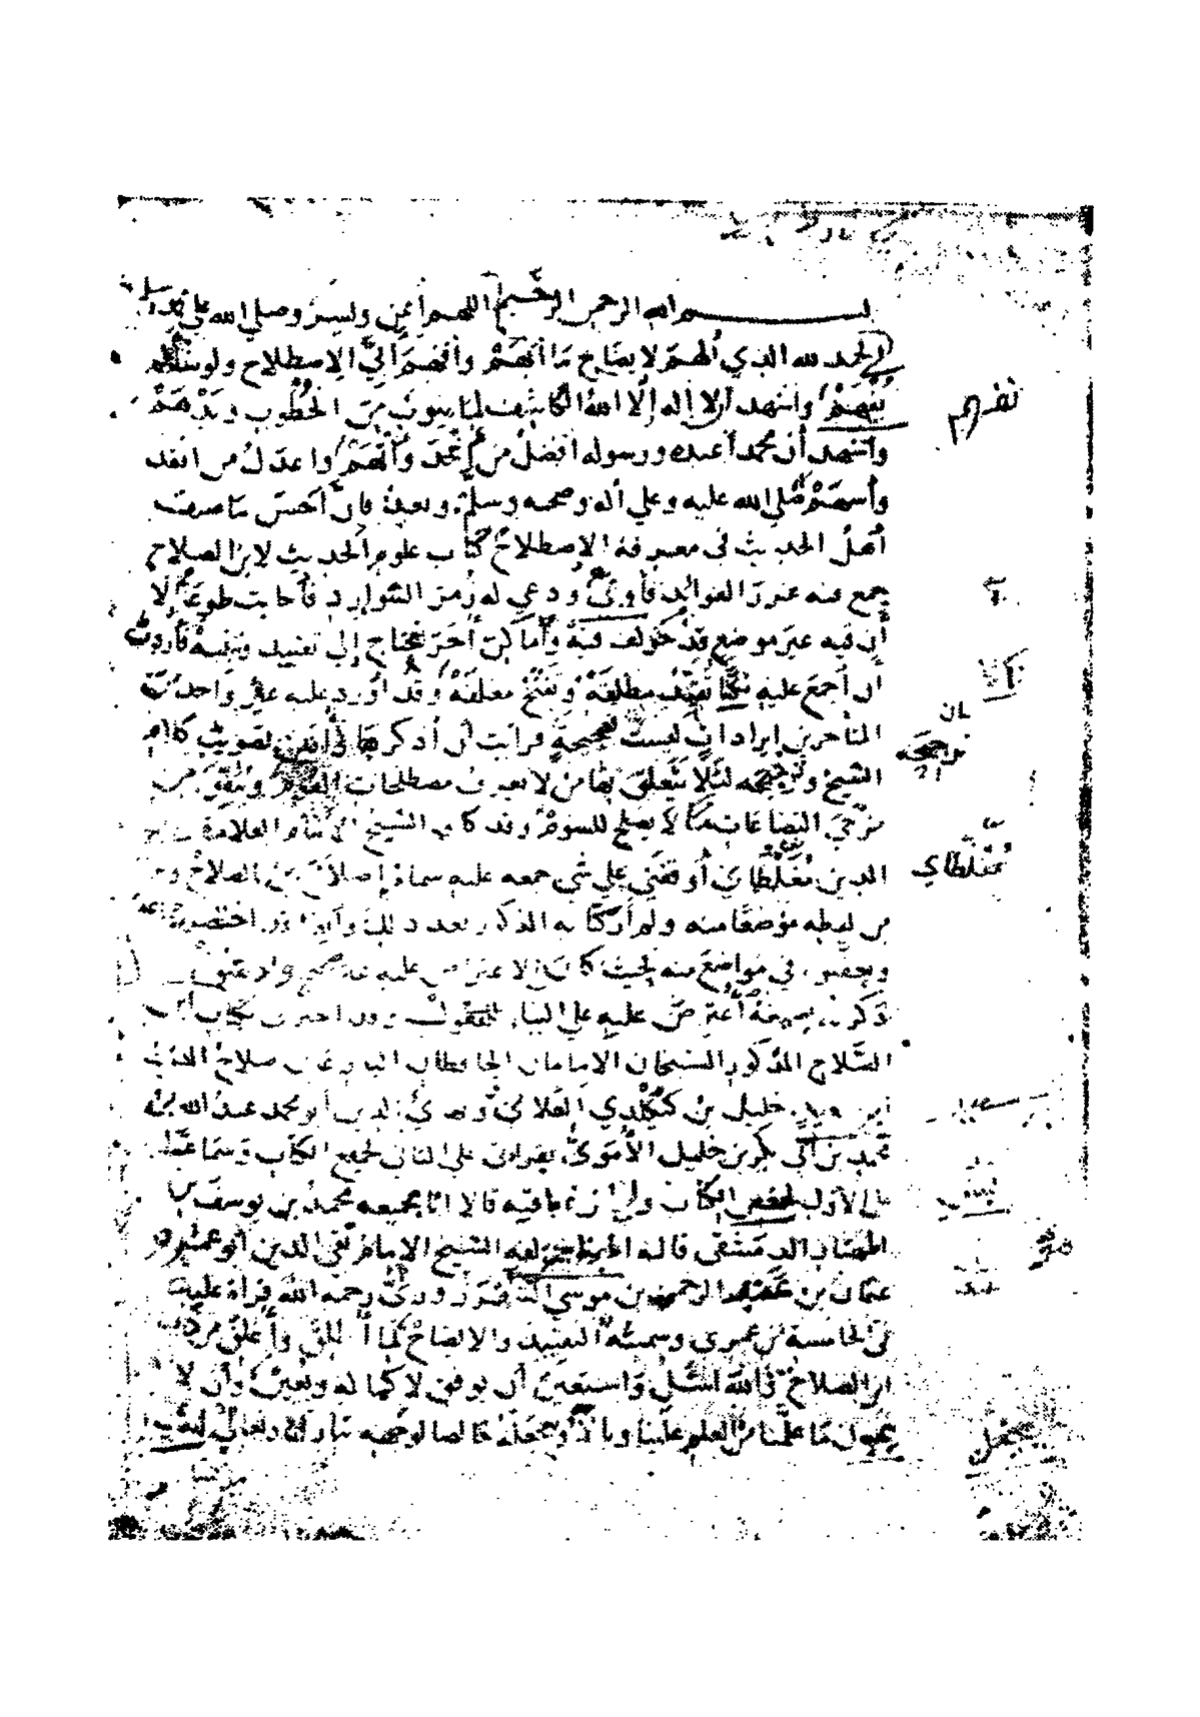 بسم الله الرحمن الرحيم اللهم أعن ويسر وصلى الله على
الحمد لله الذي ألهم لايضاح ما أبهم وأفهم الى الاصطلاح ولو شا لم
يفهم واشهد أن لا إله إلا الله الكاشف لما ينوب من الخطوب ويدهم
واشهد أن محمدا عبده ورسوله افضل من وأتهم واعدل من انفد
وأسهم صلى الله عليه وعلى آله وصحبه وسلم وبعد فان أحسن ما صنف
أهل الحديث في معرفة الاصطلاح كتاب علوم الحديث لابن الصلاح
جمع فيه غرر الفوايد فأوعى ودعي له زمر الشوارد فأجابت طوعا إلا
أن فيه غير موضع قد خولف فيه وأماكن أخر تحتاج إلى تقييد وتنبيه فاردت
أن أجمع عليه نكتا تقيد مطلقه وتفتح مغلقه وقد أورد عليه غير واحد من
المتأخرين إيرادات ليست بصحيحة فرأيت أن أذكرها وأبين تصويب كلام
الشيخ وترجيحه لئلا يتعلق بها من لا يعرف مصطلحات القوم وينفق من
مزجى البضاعات ما لا يصلح للسوم وقد كان الشيخ الامام العلامة
الدين مغلطاي أوقفني على شي جمعه عليه سماه إصلاح بن الصلاح
من لفظه موضعا منه ولم أر كتابه المذكور بعد ذلك وأيضا قد اختصره جماعة
في مواضع منه بحيث كان الاعتراض عليه
ذكرته بصيغة أعترض عليه على البناء للمفعول وقد اخبرني بكتاب ابن
الصلاح المذكور الشيخان الامامان الحافظان صلاح الدين
خليل بن كيكلدي العلائي وبهاء الدين أبو محمد عبد الله بن
محمد بن أبي بكر بن خليل الأموي بقراءتي على الثاني لجميع الكتاب وسماعا
على الأول لبعض الكتاب باقيه قالا انا بجميعه محمد بن يوسف
المهتار الدمشقي قال انا مؤلفه الشيخ الإمام تقي الدين أبو عمرو
عثمان بن عبد الرحمن بن موسى الشهرزوري رحمه الله قراءة عليه
في الخامسة من عمري وسميته التقييد والايضاح لما أطلق وأغلق من كتاب
ابن الصلاح والله أسئل وأستعين أن يوفق لاكماله ويعين وأن لا
يجعل ما علمنا من العلم علينا وبالا ويجعله خالصا لوجهه تبارك وتعالى
تفهم
مغلطاي